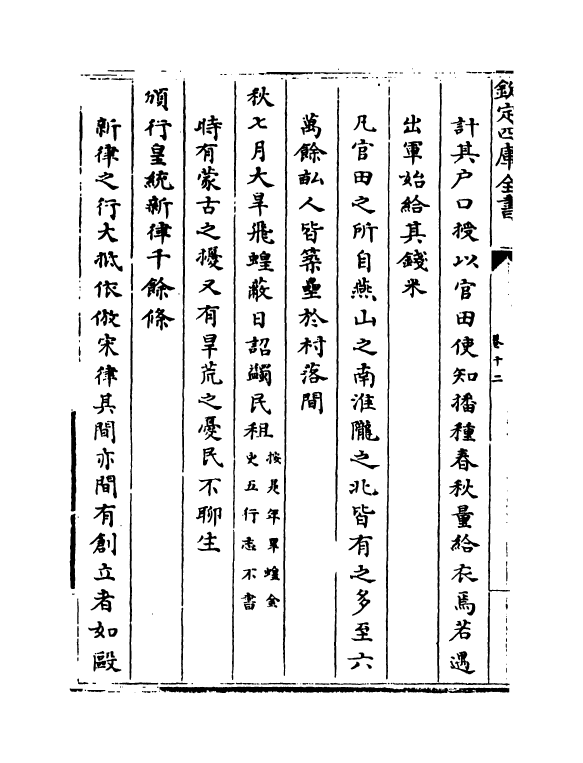 欽定四庫全書
卷十二
計其户口授以官田使知播種春秋量給衣焉若遇
出軍始給其錢米
凡官田之所自燕山之南淮隴之北皆有之多至六
萬餘畆人皆築壘於村落間
秋七月大旱飛蝗蔽日詔蠲民租按是年旱蝗金史五行志不書
時有蒙古之擾又有旱荒之憂民不聊生
頒行皇統新律千餘條
新律之行大抵依倣宋律其間亦間有創立者如毆